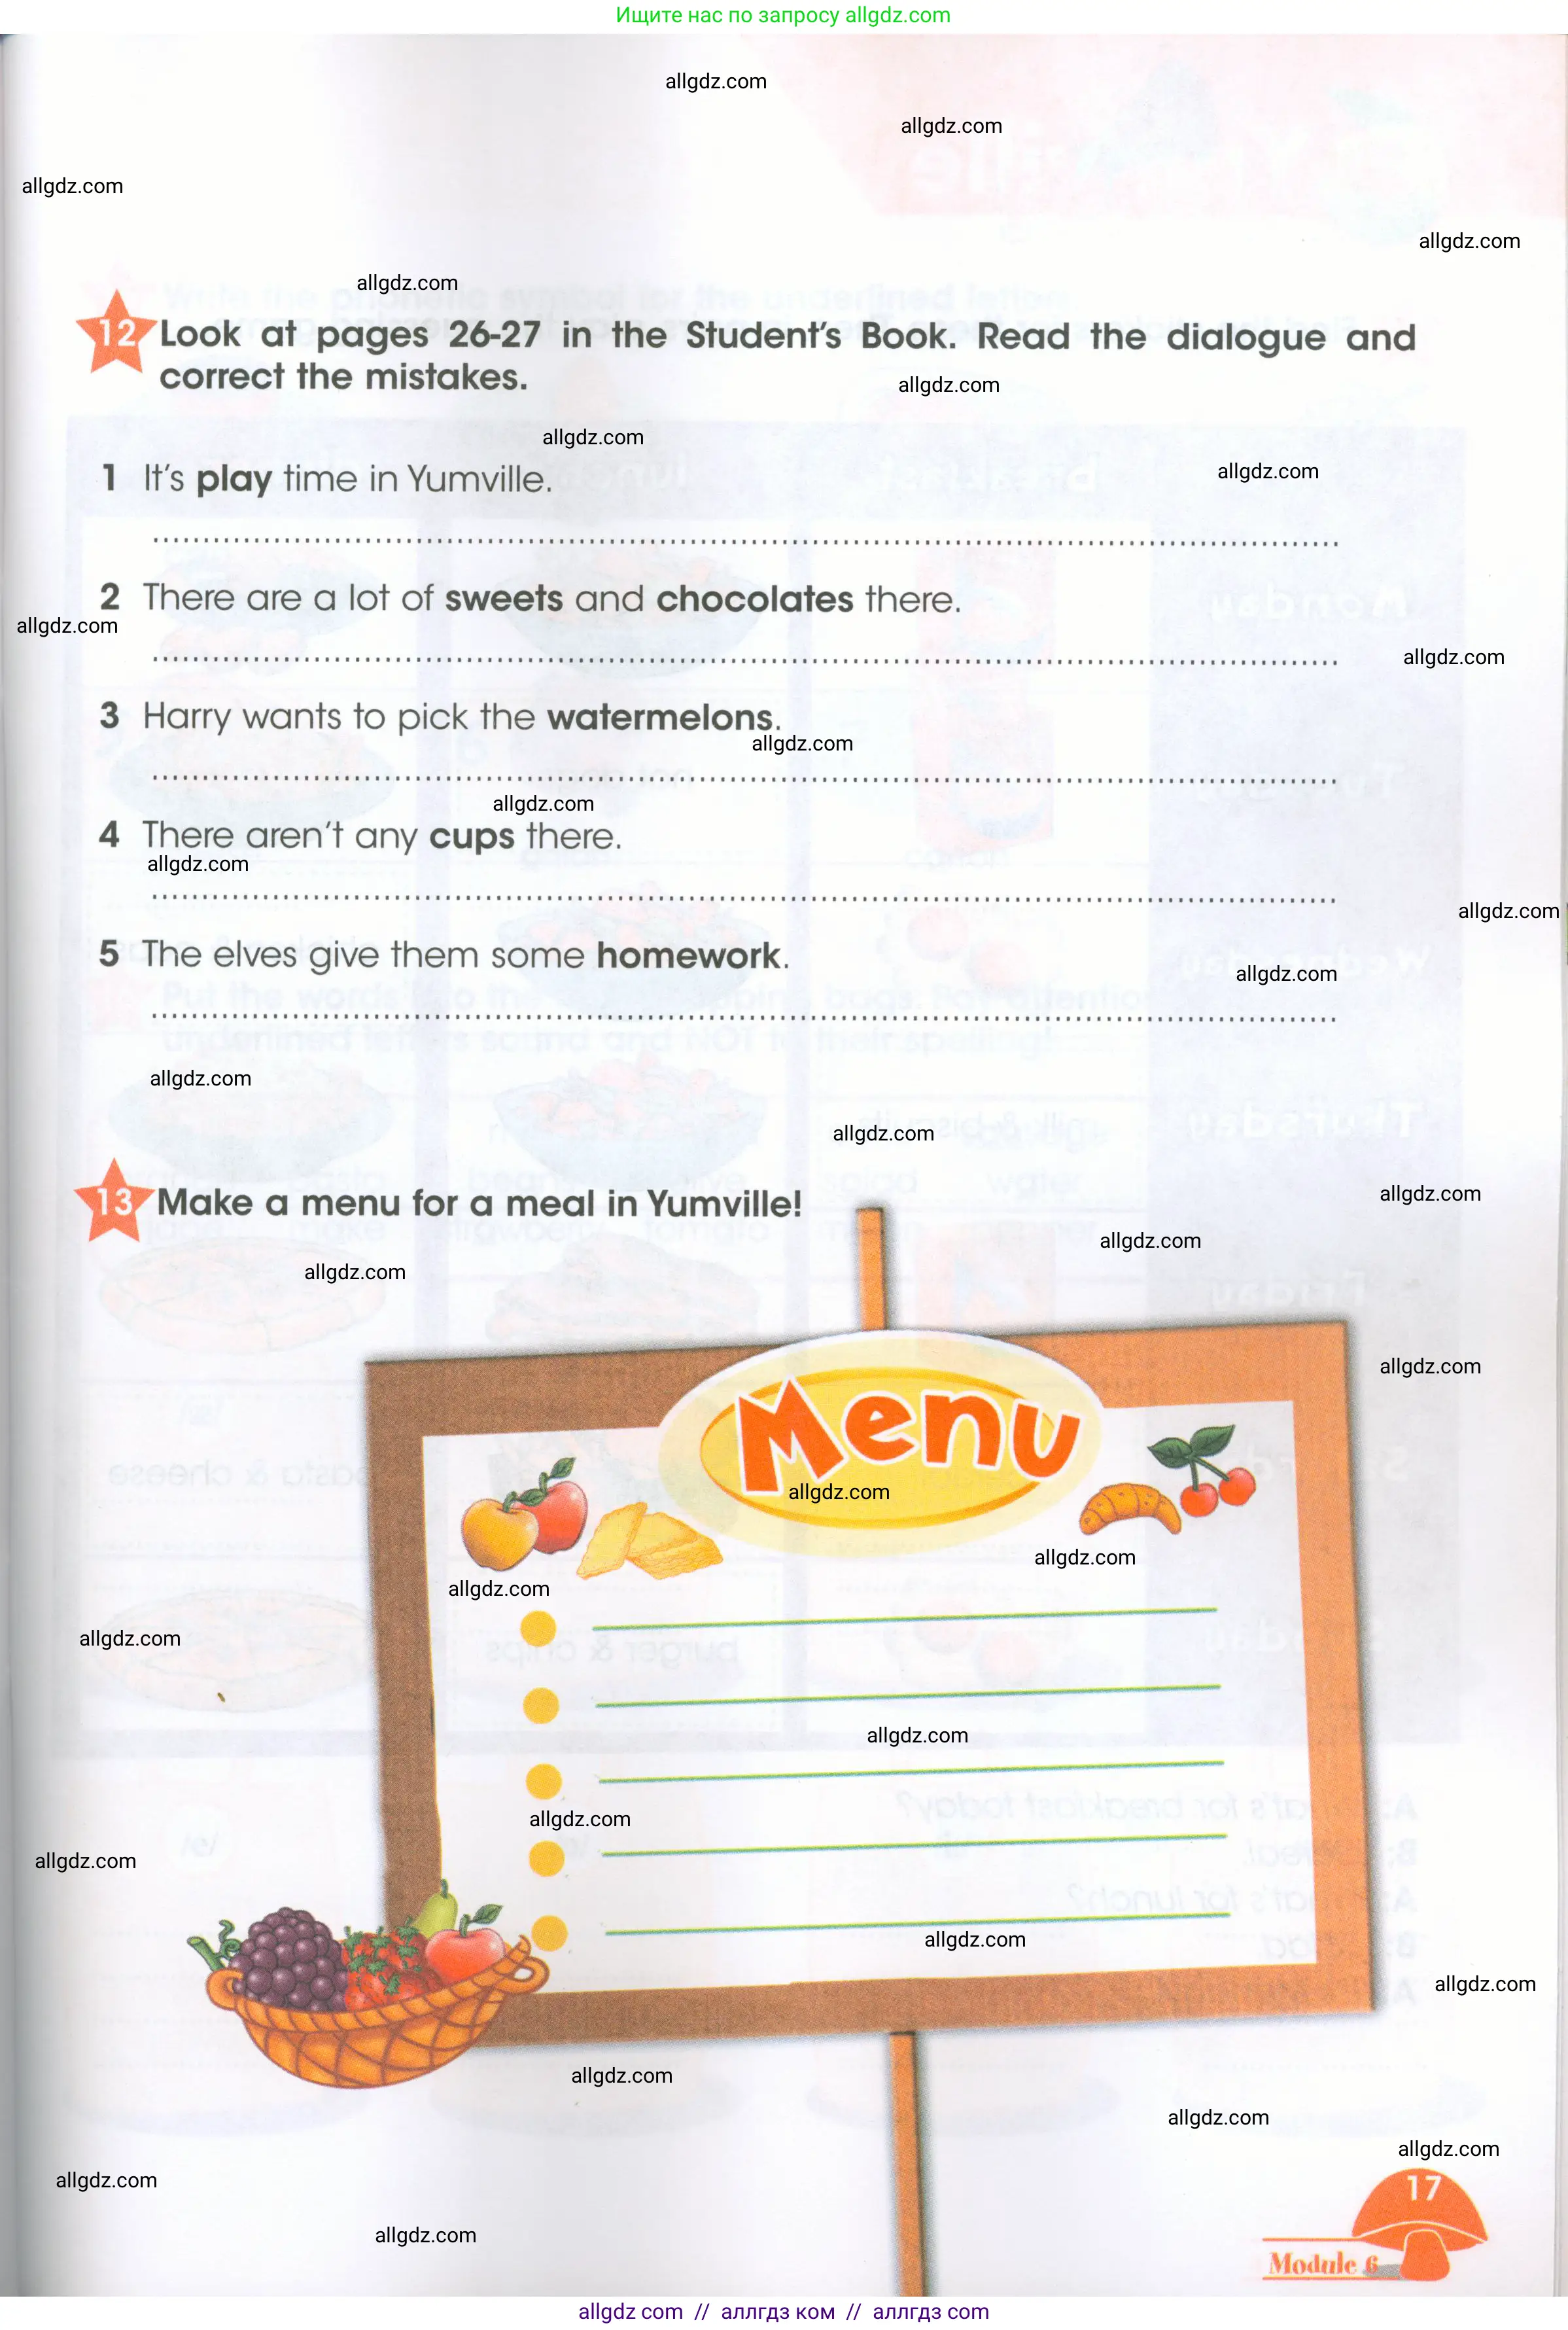 Ищите нас по запросу allgdz.com
allgdz.com
allgdz.com
allgdz.com
allgdz.com
allgdz.com
12 Look at pages 26-27 in the Student's Book. Read the dialogue and
correct the mistakes.
allgdz.com
allgdz.com
allgdz.com
1 It's play time in Yumville.
2 There are a lot of sweets and chocolates there.
allgdz.com
allgdz.com
3 Harry wants to pick the watermelons.
allgdz.com
allgdz.com
4 There aren't any cups there.
allgdz.com
allgdz.com
5 The elves give them some homework.
allgdz.com
allgdz.com
allgdz.com
allgdz.com
13 Make a menu for a meal in Yumville!
allgdz.com
allgdz.com
allgdz.com
Menu
allgdz.com
allgdz.com
allgdz.com
allgdz.com
allgdz.com
allgdz.com
allgdz.com
allgdz.com
allgdz.com
allgdz.com
allgdz.com
allgdz.com
allgdz.com
17
Module 6
allgdz.com
allgdz com // аллгдз ком // аллгдз com